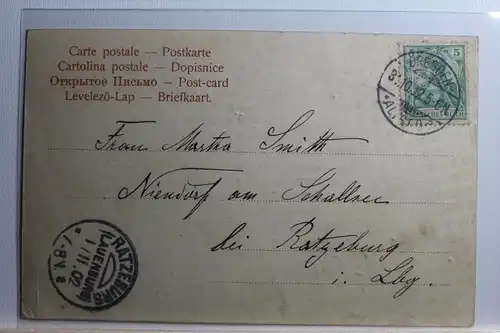 Carte postale — Postkarte
Cartolina postale — Dopisnice
Открытое Письмо — Post-card
Levelező-Lap — Briefkaart.
5
DRESDEN
ALTST.
Frau Martha Smith
Niendorf am Schallsee
bei Ratzeburg
i. Lbg.
RATZEBURG
(LAUENBURG)
1.11.02
7-8V.